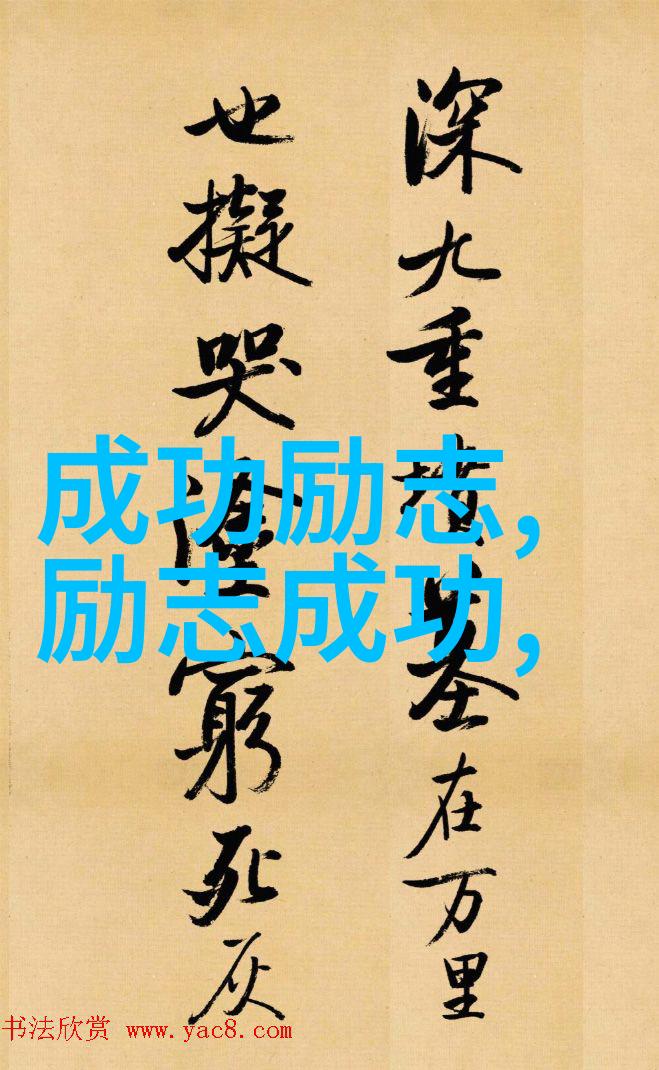 深九重墳墓在万里
也擬哭塗窮死灰
成功励志,
励志成功,
书法欣赏 www.yac8.com